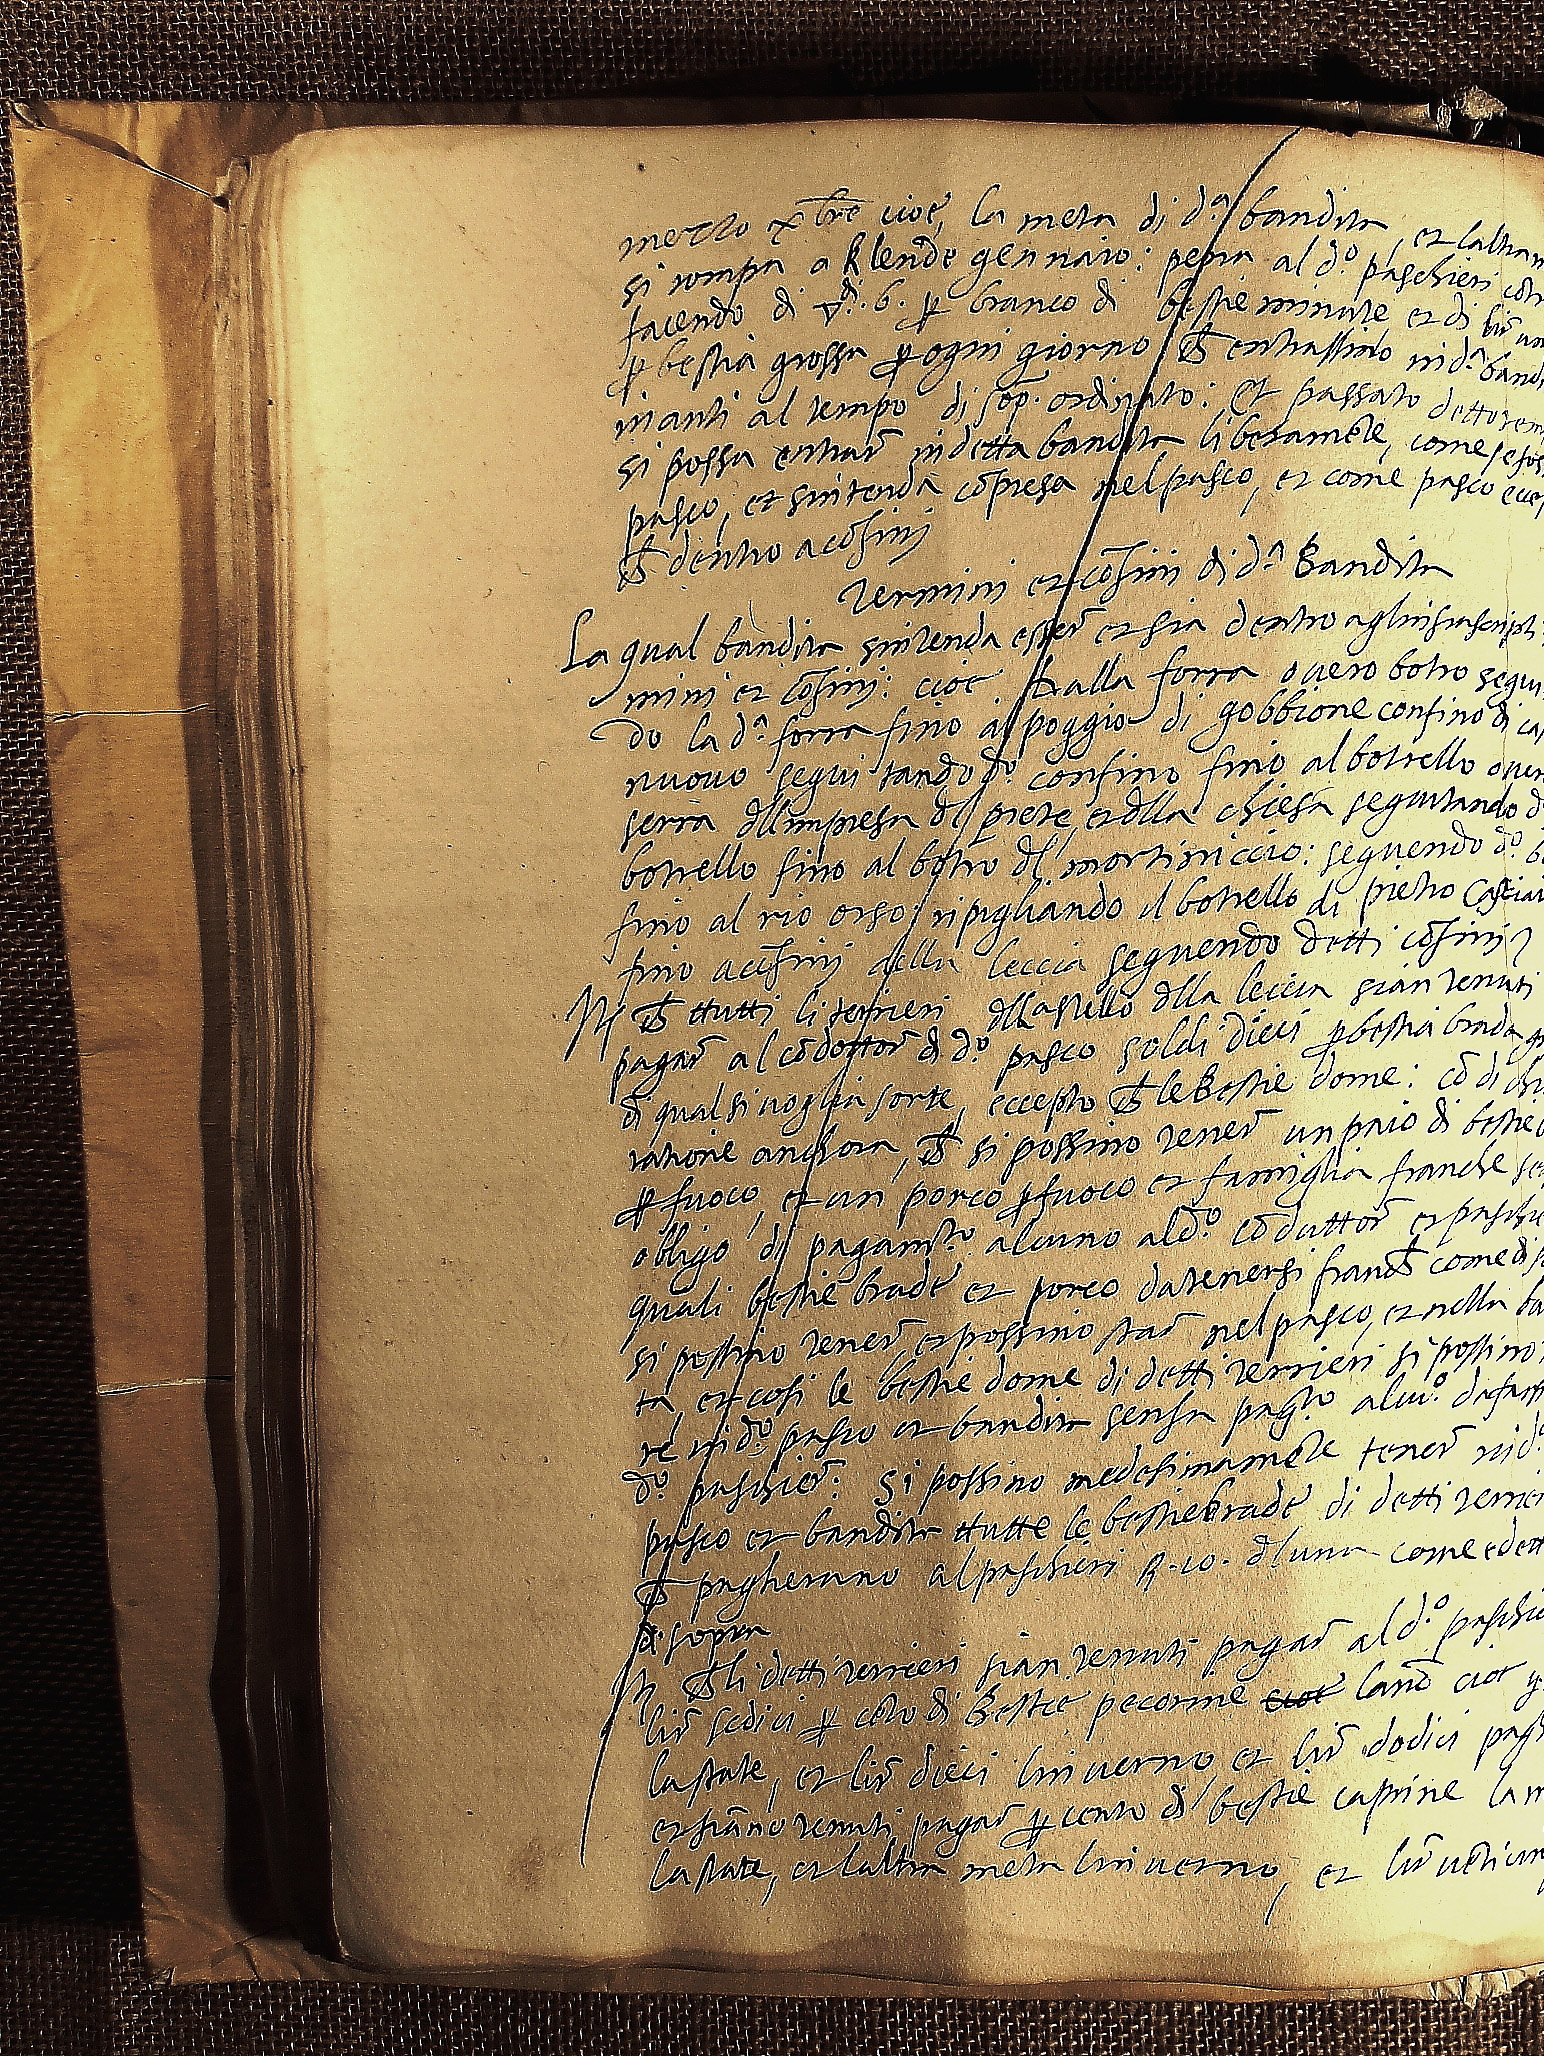 mezzo xbre cioe, la meta di d.a bandita, et laltra
si rompa a klende gennaio: pena al d.o paschieri
facendo di di .6. p branco di bestie minute et di lir
p bestia grossa p ogni giorno ch entrassino in d.a
inanti al tempo di sop. ordinato: Et passato detto
si possa entrar in detta bandita liberamete, come se
pasco, et sintenda copresa nel pasco, et come pasco
ch dentro a cofini
Termini et cofini di d.a Bandita
La qual bandita sintenda esser et sia dentro aglinfrascripti
mini et cofini: cioe dalla forra overo botro
do la d.a forra fino al poggio di gobbione confino di
nuovo seguitando d.o confino fino al botrello
serra dllimpresa dl prete, et dlla chiesa seguitando
botrello fino al botro dl mortiniccio: seguendo d.o
fino al rio orso ripigliando il botrello di pietro
fino a cofini della leccia seguendo detti cofini
It ch ttutti li terrieri dl castello dlla leccia sian tenuti
pagar al codottor di d.o pasco soldi dieci p bestia brada
di qual si voglia sorte, eccepto ch le Bestie dome: co
ratione anchora, ch si possino tener un paio di bestie
p fuoco, et un porco p fuoco et famiglia franche
obligo di pagamto alcuno al d.o coduttor et
quali bestie brade et porco da tenersi franch come
si possino tener, et possino star nel pasco, et nella
ta et cosi le bestie dome di detti terrieri si possino
re in d.o pasco et bandita sensa pagto alcu.o
d.o paschier: Si possino medesimamete tener
pasco et bandita ttutte le bestie brade di detti
ch pagherano al paschieri .10. dluna come e
di sopra
It ch li detti terrieri sian tenuti pagar al d.o
lir sedici p ceto di Bestie pecorine cioe lano cioe
la state, et lir dieci linverno et lir dodici
et siano tenuti pagar p cento di bestie caprine la
la state, et laltra meta linverno, et lir